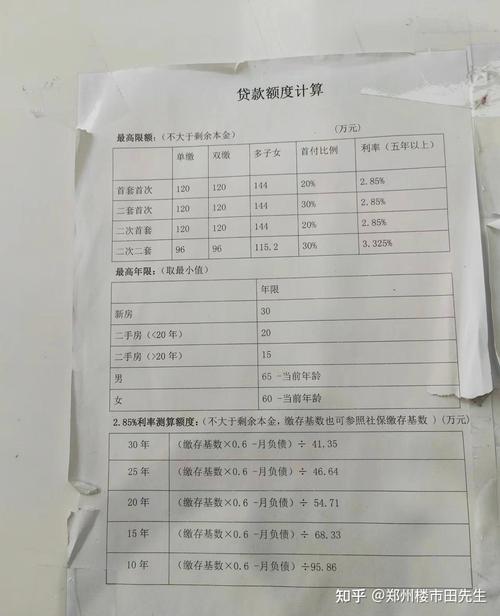 贷款额度计算
最高限额：（不大于剩余本金） （万元）
单缴 双缴 多子女 首付比例 利率（五年以上）
首套首次 120 120 144 20% 2.85%
二套首次 120 120 144 30% 2.85%
二次首套 120 120 144 20% 2.85%
二次二套 96 96 115.2 30% 3.325%
最高年限：（取最小值）
年限
新房 30
二手房（<20 年） 20
二手房（>20 年） 15
男 65 -当前年龄
女 60 -当前年龄
2.85%利率测算额度：（不大于剩余本金，缴存基数也可参照社保缴存基数 ）（万元）
30 年 （缴存基数×0.6 -月负债）÷ 41.35
25 年 （缴存基数×0.6 -月负债）÷ 46.64
20 年 （缴存基数×0.6 -月负债）÷ 54.71
15 年 （缴存基数×0.6 -月负债）÷ 68.33
10 年 （缴存基数×0.6 -月负债）÷95.86
知乎 @郑州楼市田先生